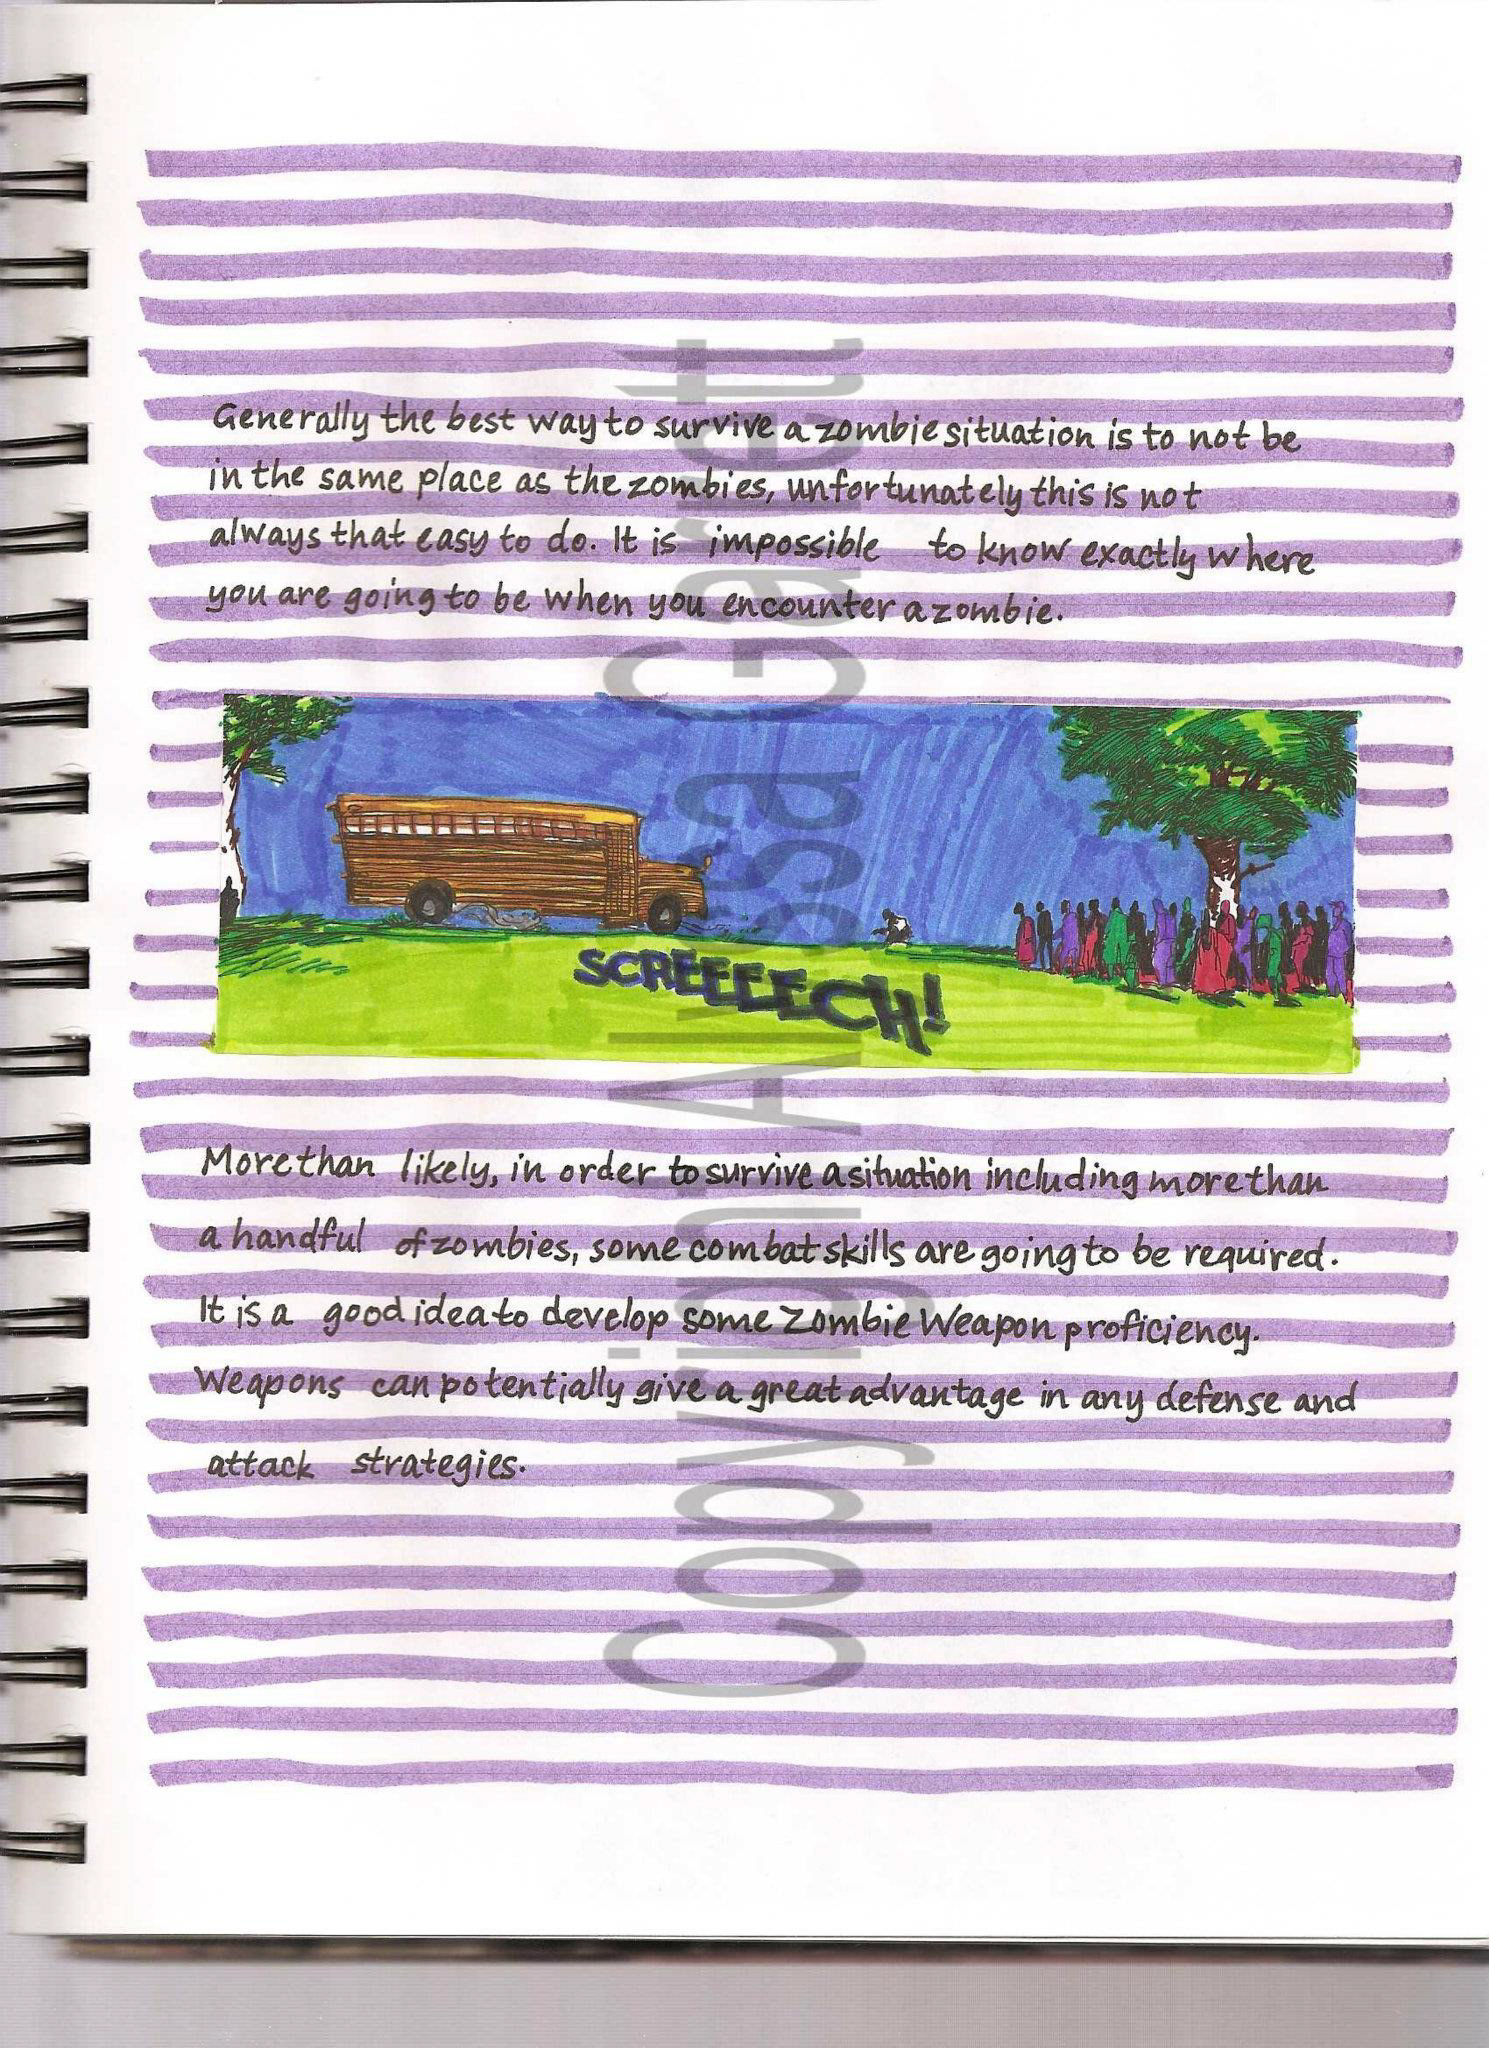 Generally the best way to survive a zombie situation is to not be
in the same place as the zombies, unfortunately this is not
always that easy to do. It is impossible to know exactly where
you are going to be when you encounter a zombie.
SCREEEECH!
More than likely, in order to survive a situation including more than
a handful of zombies, some combat skills are going to be required.
It is a good idea to develop some Zombie Weapon proficiency.
Weapons can potentially give a great advantage in any defense and
attack strategies.
Copyright Alyssa Garrett